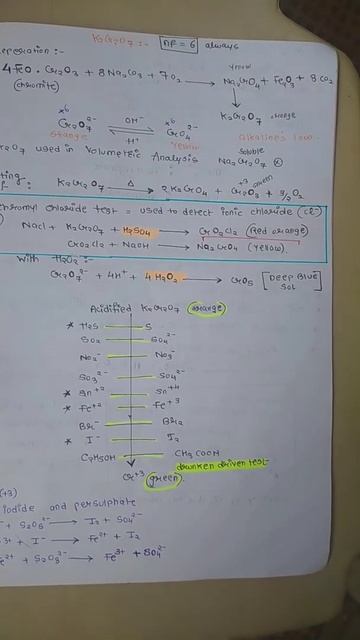 K2Cr2O7 :- nF = 6 always
eperation :-
4FeO.Cr2O3 + 8Na2CO3 + 7O2 → Na2CrO4 + Fe2O3 + 8CO2
(chromite) yellow
K2Cr2O7 orange
Cr2O7^2- ⇌ CrO4^2- OH- H+ x6 x6
orange Yellow
soluble
r2O7 used in Volumetric Analysis Na2Cr2O7 ⊗
ting :- K2Cr2O7 —Δ→ 2K2CrO4 + Cr2O3 + 3/2O2 +3 green
chromyl chloride test = used to detect ionic chloride (Cl-)
NaCl + K2Cr2O7 + H2SO4 → CrO2Cl2 (Red orange)
CrO2Cl2 + NaOH → Na2CrO4 (Yellow).
With H2O2 :-
Cr2O7^2- + 4H+ + 4H2O2 → CrO5 [DEEP BLUE Sol]
Acidified K2Cr2O7 (orange)
* H2S S
SO2 SO4^2-
NO2- NO3-
SO3^2- SO4^2-
* Sn+2 Sn+4
* Fe+2 Fe+3
Br- Br2
* I- I2
C2H5OH CH3COOH
drunken driven test
Cr+3 (green)
(+3)
iodide and persulphate
- + S2O8^2- → I2 + SO4^2-
3+ + I- → Fe2+ + I2
e2+ + S2O8^2- → Fe3+ + SO4^2-